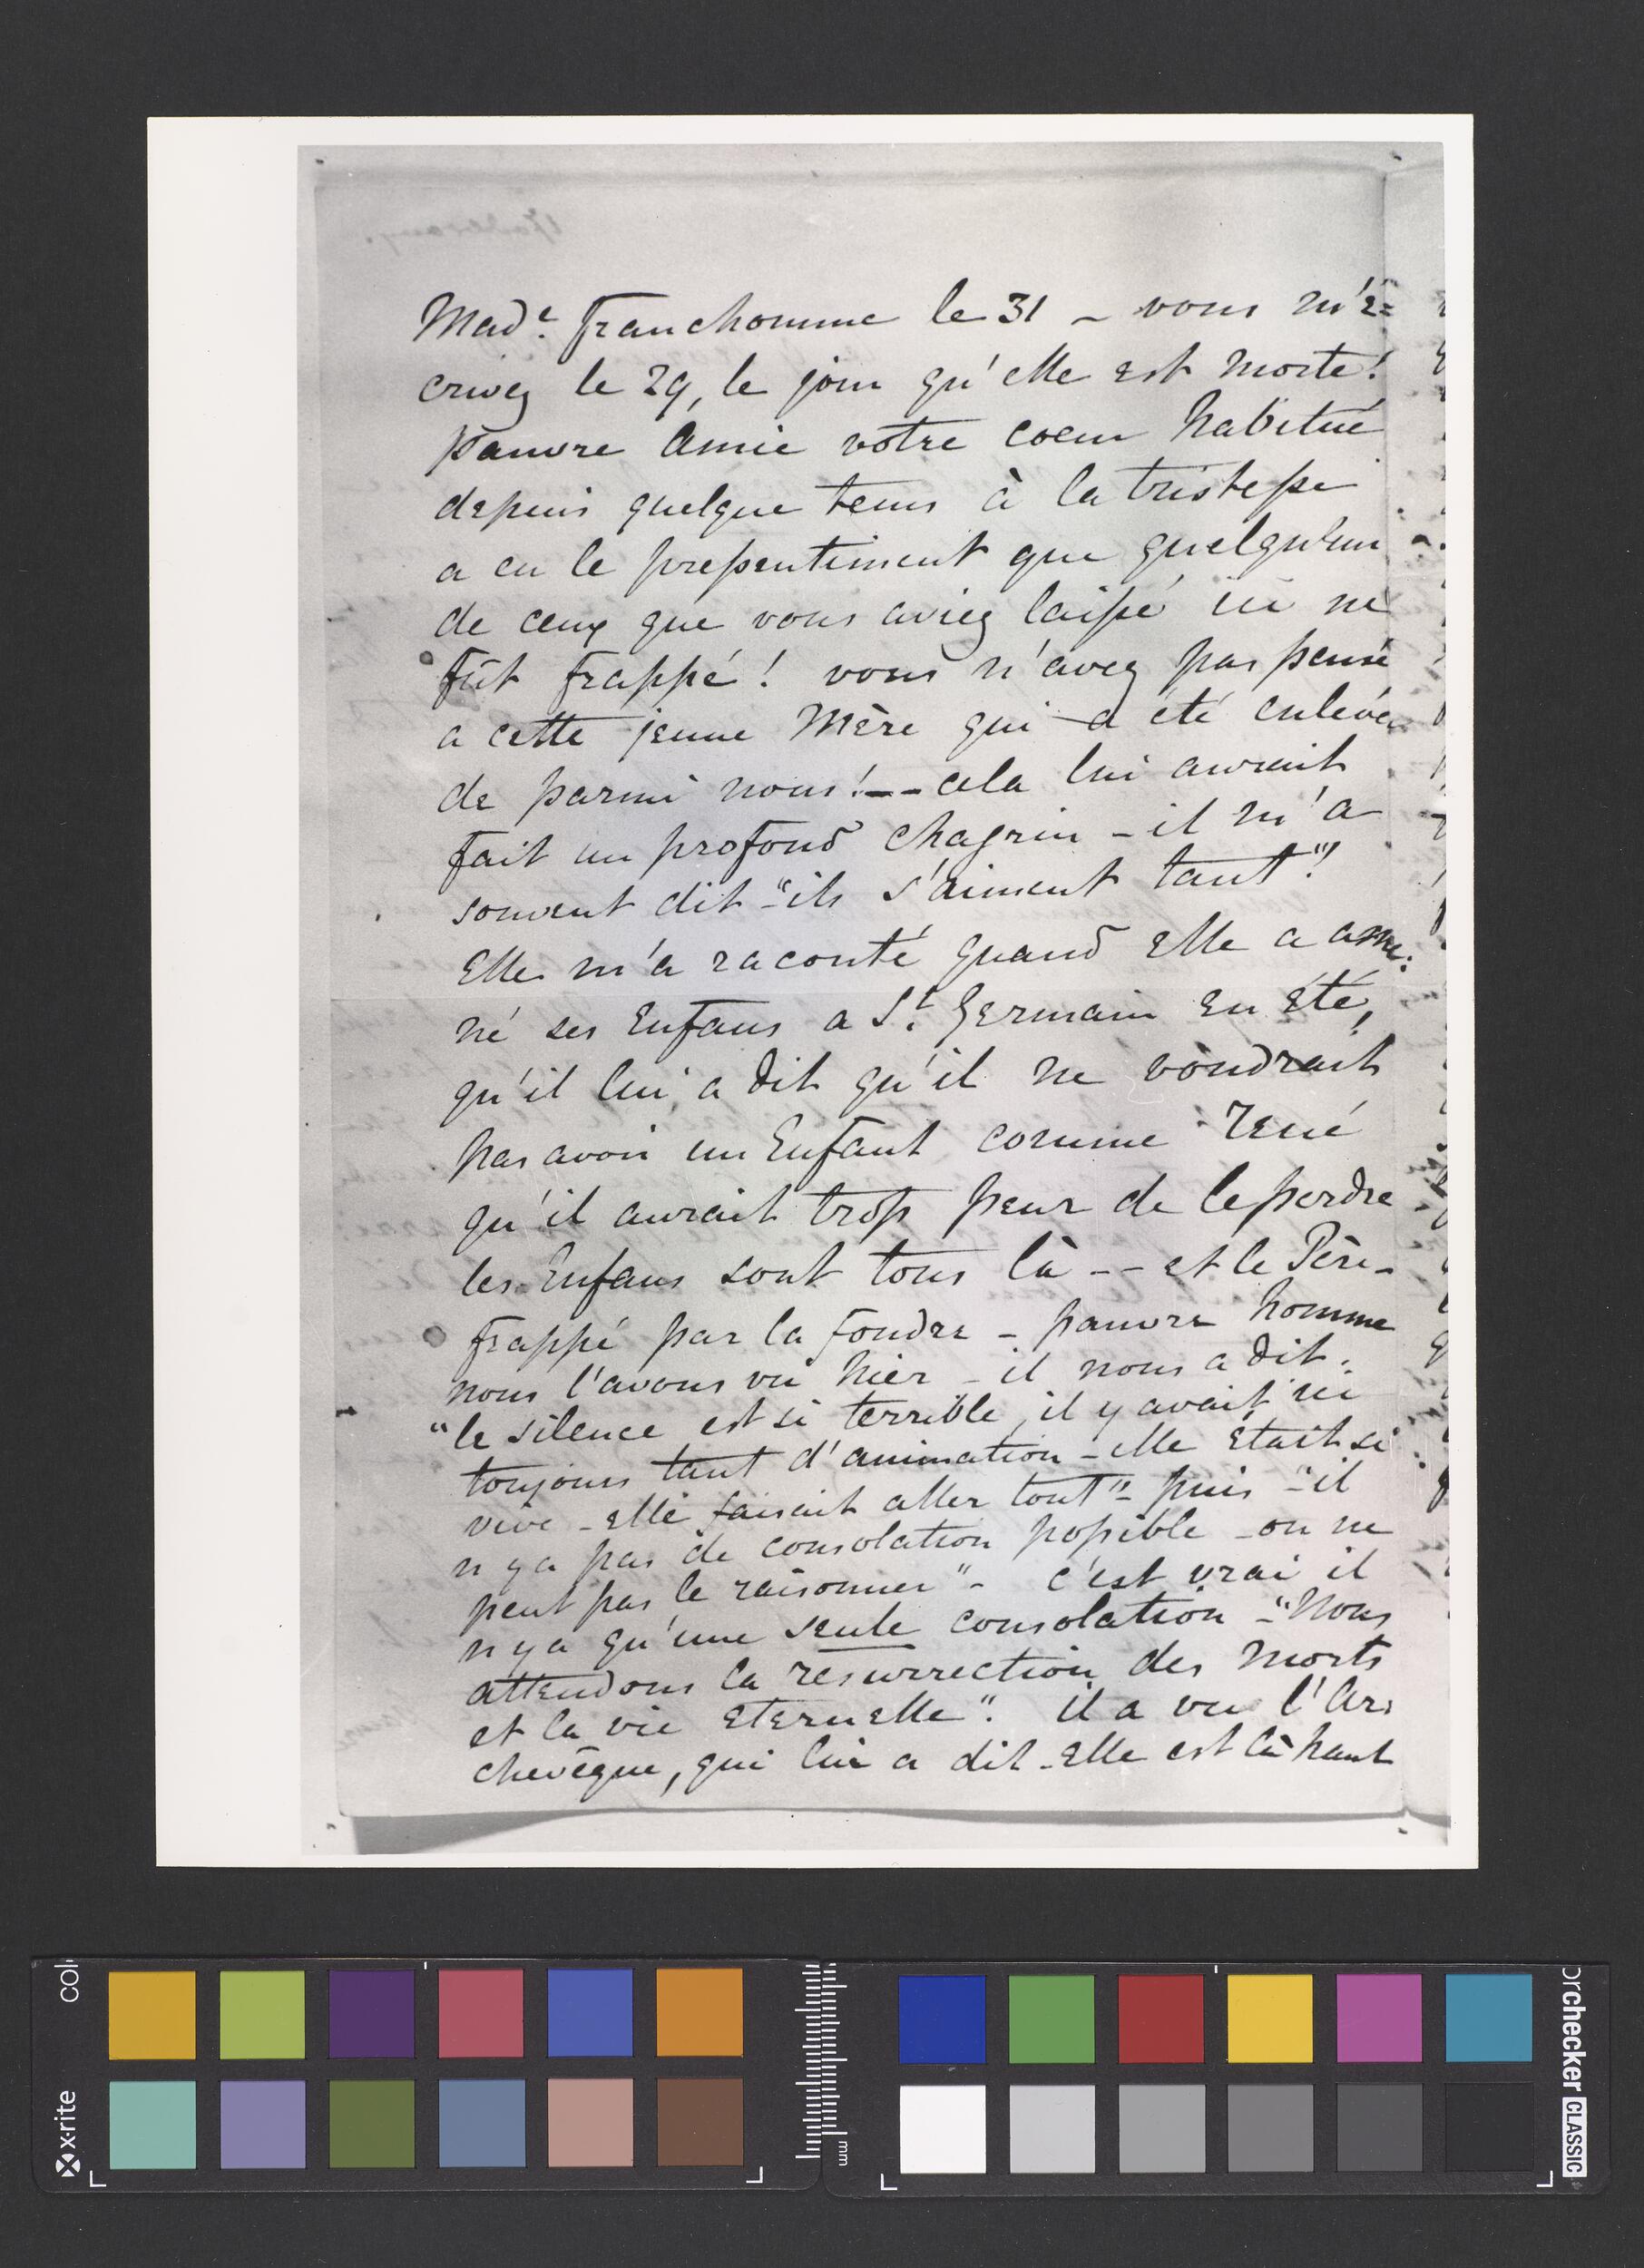 Mad.e Franchomme le 31 - vous m'é=
crivez le 29, le jour qu'elle est morte!
pauvre Amie votre coeur habitué
depuis quelque tems à la tristesse
a eu le pressentiment que quelqu'un
de ceux que vous aviez laissé ici ne
fût frappé! vous n'avez pas pensé
a cette jeune Mère qui a été enlevée
de parmi nous! -- cela lui aurait
fait un profond chagrin - il m'a
souvent dit - "ils s'aiment tant"!
Elle m'a raconté quand elle a ame:
né ses Enfans a St. Germain en été,
qu'il lui a dit qu'il ne voudrait
pas avoir un Enfant comme René
qu'il aurait trop peur de le perdre
les Enfans sont tous là -- et le Père -
frappé par la foudre - pauvre homme
nous l'avons vu hier - il nous a dit.
"le silence est si terrible, il y avait ici
toujours tant d'animation - elle était si
vive - elle faisait aller tout" - puis - "il
n y a pas de consolation possible - on ne
peut pas le raisonner" - c'est vrai il
n y a qu'une seule consolation - "Nous
attendons la résurrection des morts
et la vie eternelle". il a vu l'Ar:
chevêque, qui lui a dit - Elle est là haut
x-rite
colorchecker CLASSIC
mm